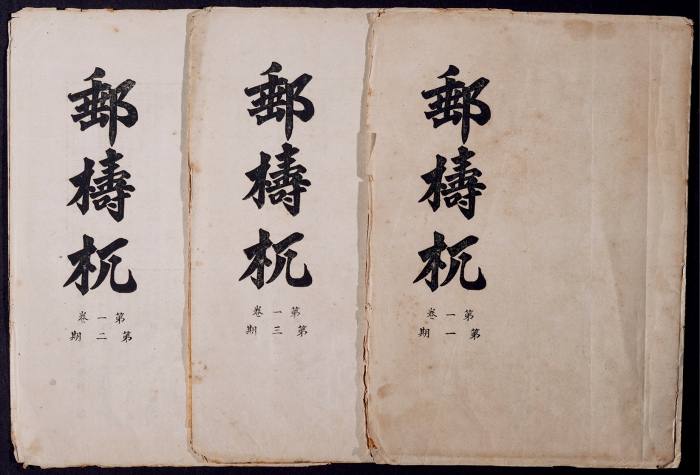 郵檮杌
第一卷
第一期
郵檮杌
第一卷
第三期
郵檮杌
第一卷
第二期